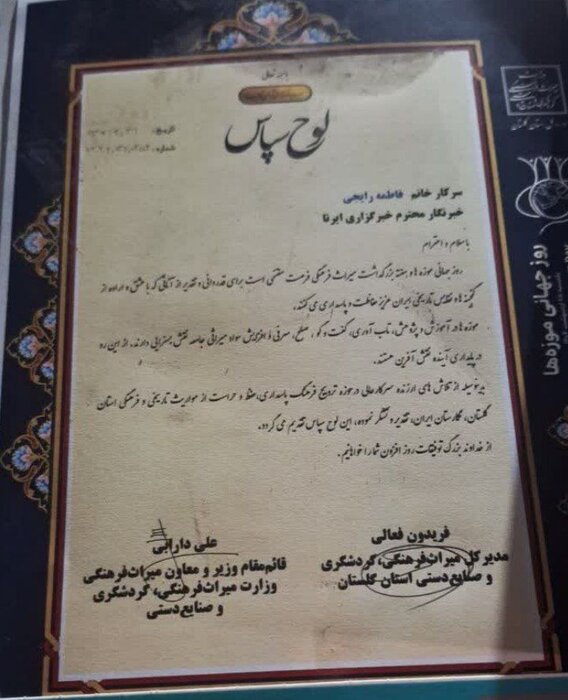 باسمه تعالی
لوح سپاس
تاریخ:
شماره:
سرکار خانم فاطمه رایجی
خبرنگار محترم خبرگزاری ایرنا
با سلام و احترام
روز جهانی موزه ها و هفته بزرگداشت میراث فرهنگی فرصت مغتنمی است برای قدردانی و تقدیر از آنانی که با عشق و اراده از
گنجینه ها و نفایس تاریخی ایران عزیز حفاظت و پاسداری می کنند.
موزه ها در آموزش و پژوهش، تاب آوری، گفت و گو، صلح، سرفی و افزایش سواد میراثی جامعه نقش بسزایی دارند. از این رو
در پایداری آینده نقش آفرین هستند.
بدینوسیله از تلاش های ارزنده سرکارعالی در حوزه ترویج فرهنگ پاسداری، حفظ و حراست از مواریث تاریخی و فرهنگی استان
گلستان، نگارستان ایران، تقدیر و تشکر نموده، این لوح سپاس تقدیم می گردد.
از خداوند بزرگ توفیقات روز افزون شما را خواهانیم.
فریدون فعالی
مدیر کل میراث‌فرهنگی، گردشگری
و صنایع‌دستی استان گلستان
علی دارابی
قائم‌مقام وزیر و معاون میراث‌فرهنگی
وزارت میراث‌فرهنگی، گردشگری
و صنایع‌دستی
روز جهانی موزه‌ها